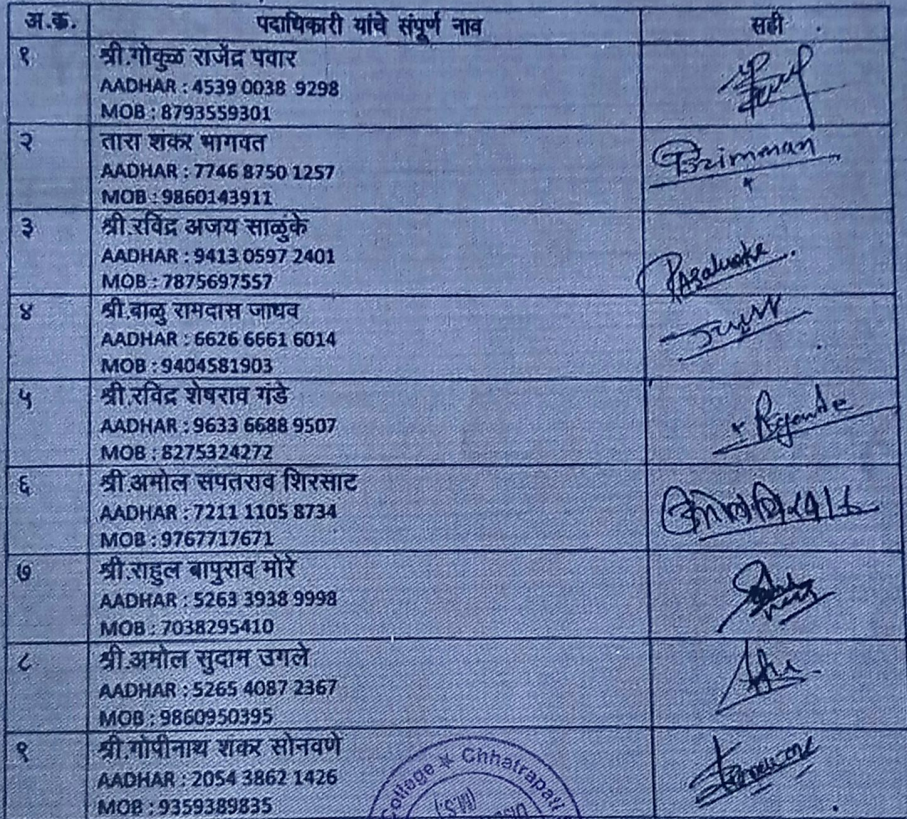 अ.क्र. पदाधिकारी यांचे संपूर्ण नाव सही
१ श्री.गोकुळ राजेंद्र पवार
AADHAR : 4539 0038 9298
MOB : 8793559301
२ तारा शंकर भागवत
AADHAR : 7746 8750 1257
MOB : 9860143911
३ श्री.रविंद्र अजय साळुंके
AADHAR : 9413 0597 2401
MOB : 7875697557
४ श्री.बाळु रामदास जाधव
AADHAR : 6626 6661 6014
MOB : 9404581903
५ श्री.रविंद्र शेषराव गंडे
AADHAR : 9633 6688 9507
MOB : 8275324272
६ श्री.अमोल संपतराव शिरसाट
AADHAR : 7211 1105 8734
MOB : 9767717671
७ श्री.राहुल बापुराव मोरे
AADHAR : 5263 3938 9998
MOB : 7038295410
८ श्री.अमोल सुदाम उगले
AADHAR : 5265 4087 2367
MOB : 9860950395
९ श्री.गोपीनाथ शंकर सोनवणे
AADHAR : 2054 3862 1426
MOB : 9359389835
College * Chhatrapati